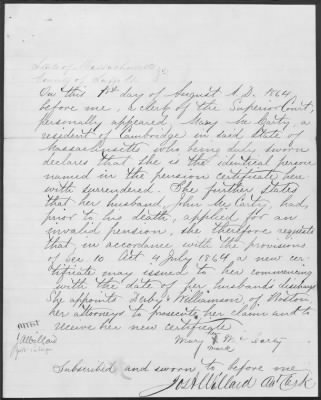 State of Massachusetts
County of
On this 1st day of August A.D. 1864,
before me, a clerk of the Superior Court,
personally appeared Mary McCarty, a
resident of Cambridge in said State of
Massachusetts who being duly sworn
declares that she is the identical person
named in the pension certificate here
with surrendered. She further states
that her husband, John McCarty, had,
prior to his death, applied for an
invalid pension, she therefore requests
that, in accordance with the provisions
of Sec 10 Act 4 July 1864 a new cer
tificate may issued to her commencing
with the date of her husbands discharge
She appoints Derby & Williamson of Boston,
her attorneys to prosecute her claim and to
receive her new certificate
Mary her X mark McCarty
Attest
J Willard
Subscribed and sworn to before me
Jos A Willard Clerk